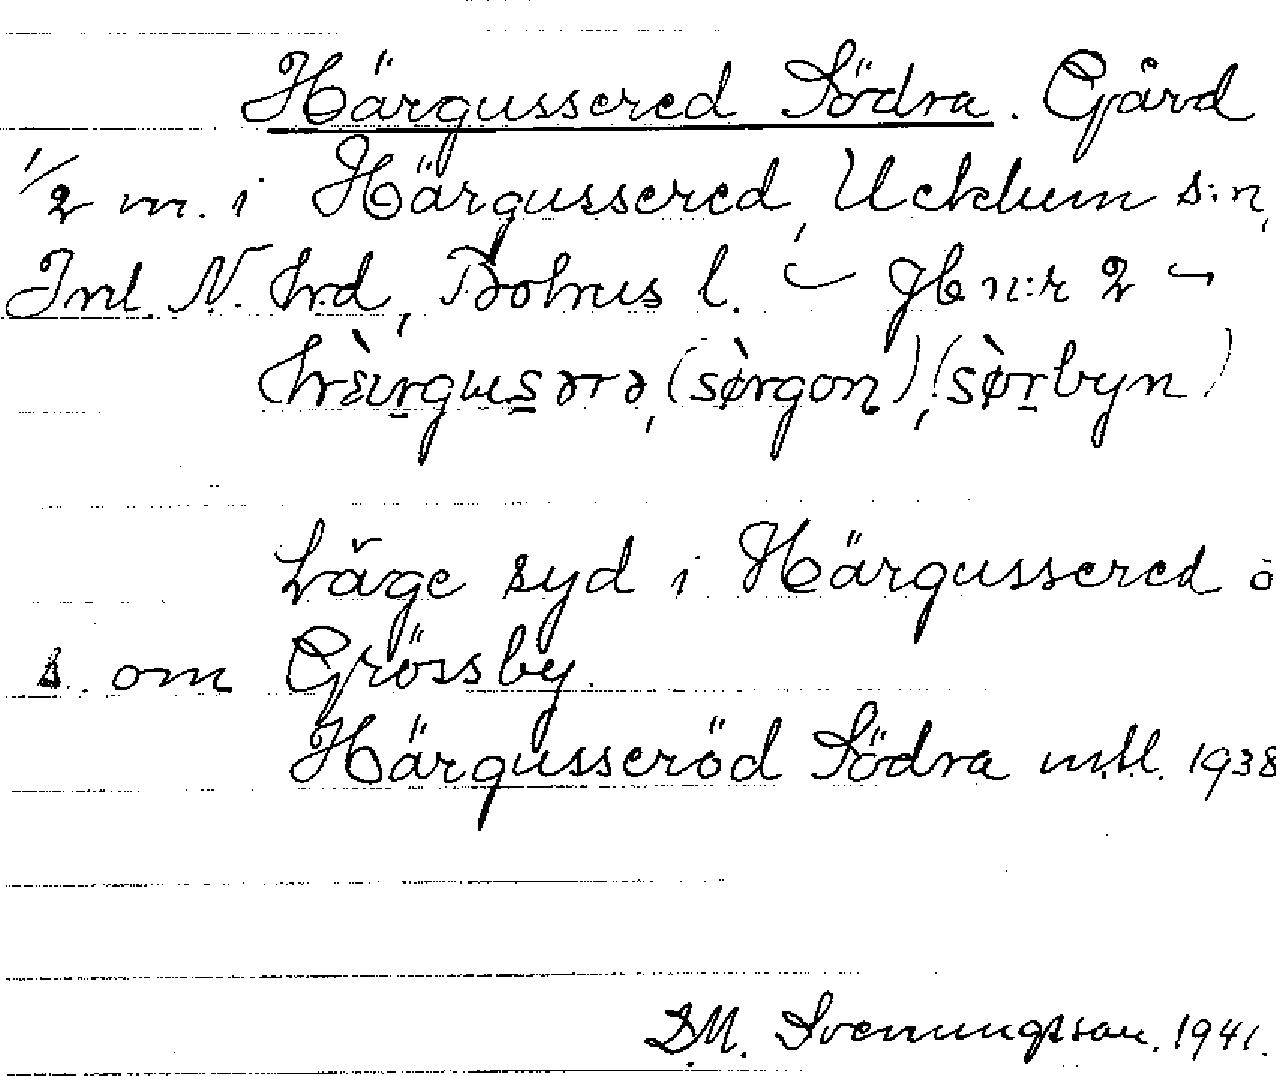 Härgussered Södra. Gård
1/2 m. i Härgussered, Ucklum s:n,
Inl. N. hrd, Bohus l. – Jb n:r 2 –
hæ̀rgusərə, (sø̀rgon), (sø̀rbyn)
Läge syd i Härgussered ö
s. om Grössby.
Härgusseröd Södra 1938
D.M. Svenungsson. 1941.